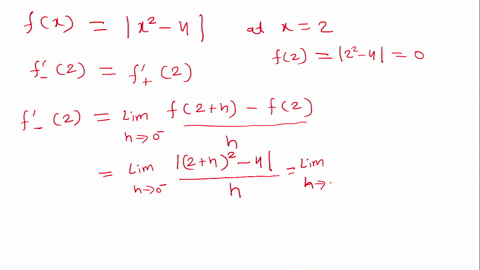 f(x) = |x² - 4| at x = 2
f(2) = |2² - 4| = 0
f'₋(2) = f'₊(2)
f'₋(2) = lim h→0⁻ f(2+h) - f(2) / h
= lim h→0⁻ |(2+h)² - 4| / h = lim h→.